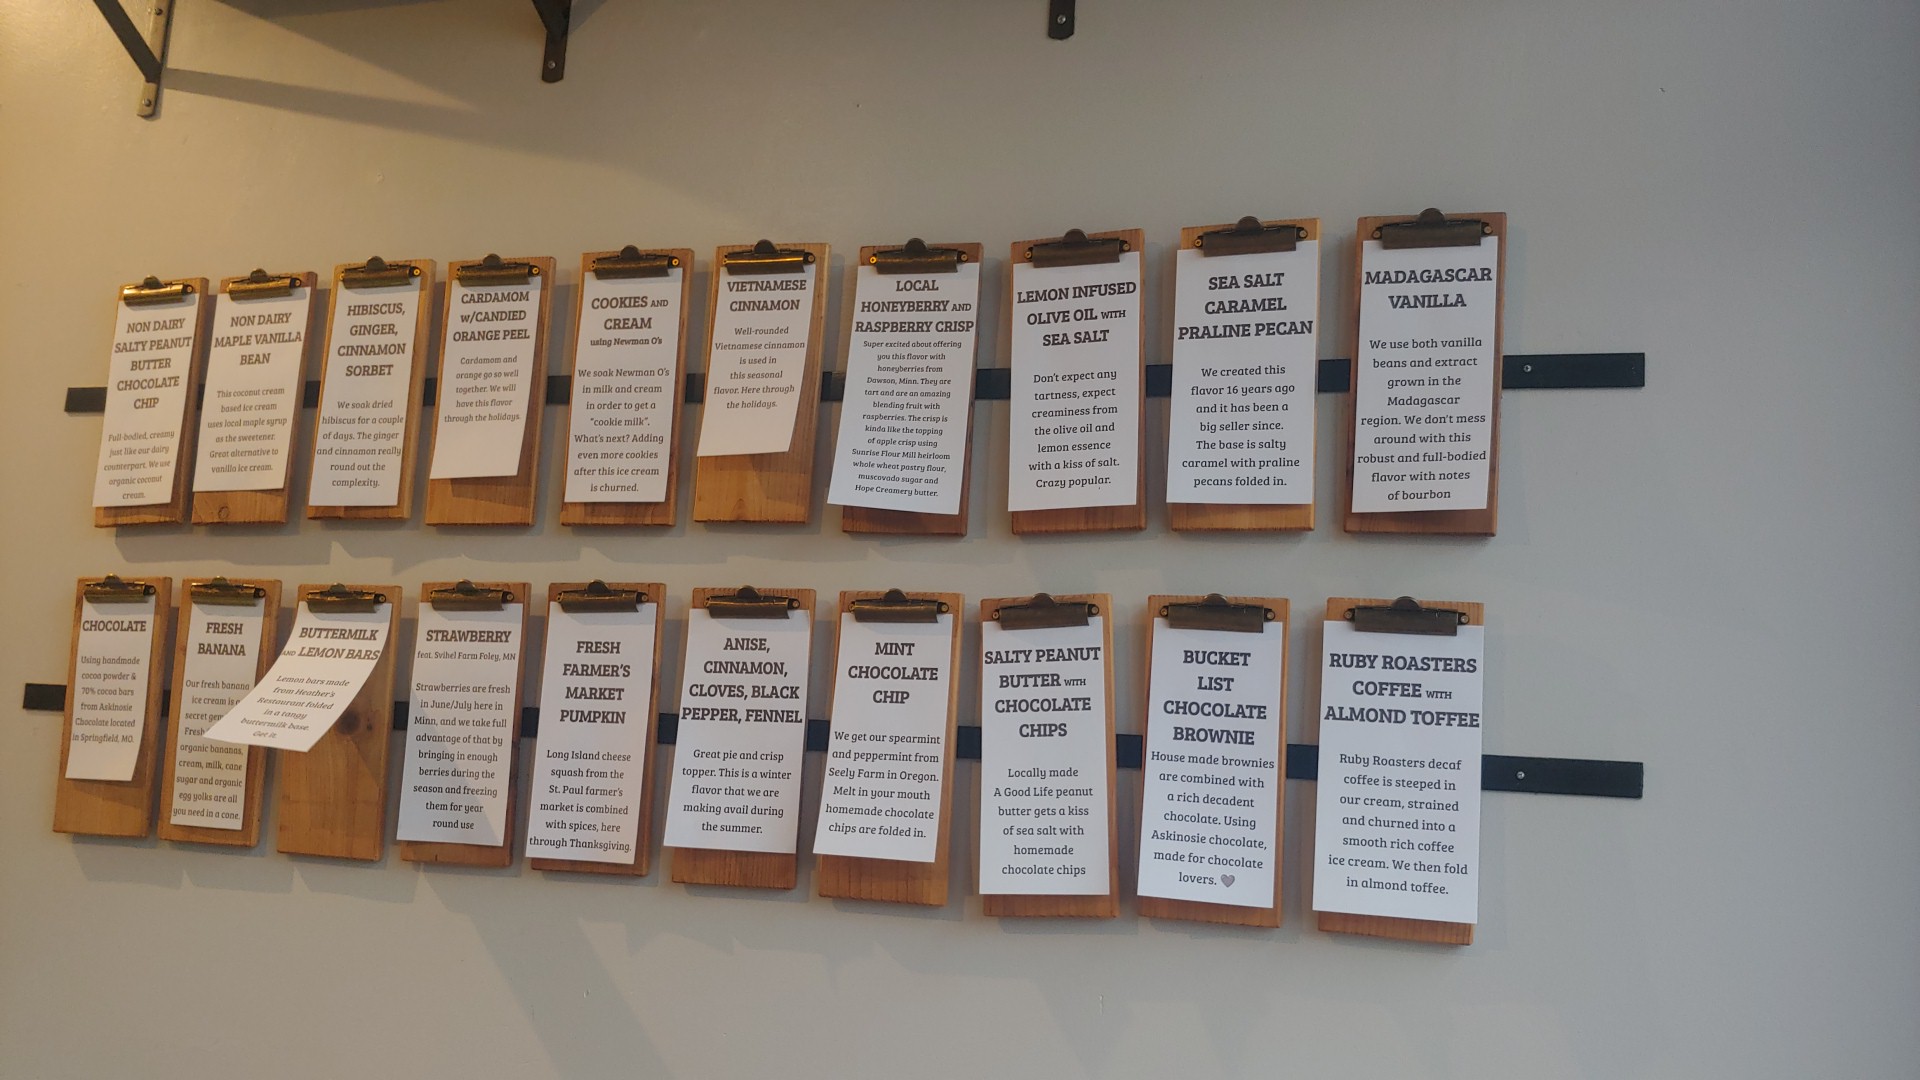 NON DAIRY
SALTY PEANUT
BUTTER
CHOCOLATE
CHIP
Full-bodied, creamy
just like our dairy
counterpart. We use
organic coconut
cream.
NON DAIRY
MAPLE VANILLA
BEAN
This coconut cream
based ice cream
uses local maple syrup
as the sweetener.
Great alternative to
vanilla ice cream.
HIBISCUS,
GINGER,
CINNAMON
SORBET
We soak dried
hibiscus for a couple
of days. The ginger
and cinnamon really
round out the
complexity.
CARDAMOM
w/CANDIED
ORANGE PEEL
Cardamom and
orange go so well
together. We will
have this flavor
through the holidays.
COOKIES AND
CREAM
using Newman O's
We soak Newman O's
in milk and cream
in order to get a
"cookie milk".
What's next? Adding
even more cookies
after this ice cream
is churned.
VIETNAMESE
CINNAMON
Well-rounded
Vietnamese cinnamon
is used in
this seasonal
flavor. Here through
the holidays.
LOCAL
HONEYBERRY AND
RASPBERRY CRISP
Super excited about offering
you this flavor with
honeyberries from
Dawson, Minn. They are
tart and are an amazing
blending fruit with
raspberries. The crisp is
kinda like the topping
of apple crisp using
Sunrise Flour Mill heirloom
whole wheat pastry flour,
muscovado sugar and
Hope Creamery butter.
LEMON INFUSED
OLIVE OIL WITH
SEA SALT
Don't expect any
tartness, expect
creaminess from
the olive oil and
lemon essence
with a kiss of salt.
Crazy popular.
SEA SALT
CARAMEL
PRALINE PECAN
We created this
flavor 16 years ago
and it has been a
big seller since.
The base is salty
caramel with praline
pecans folded in.
MADAGASCAR
VANILLA
We use both vanilla
beans and extract
grown in the
Madagascar
region. We don't mess
around with this
robust and full-bodied
flavor with notes
of bourbon
CHOCOLATE
Using handmade
cocoa powder &
70% cocoa bars
from Askinosie
Chocolate located
in Springfield, MO.
FRESH
BANANA
Our fresh banana
ice cream is
secret
Fresh
organic bananas,
cream, milk, cane
sugar and organic
egg yolks are all
you need in a cone.
BUTTERMILK
AND LEMON BARS
Lemon bars made
from Heather's
Restaurant folded
in a tangy
buttermilk base.
Get it.
STRAWBERRY
feat. Svihel Farm Foley, MN
Strawberries are fresh
in June/July here in
Minn, and we take full
advantage of that by
bringing in enough
berries during the
season and freezing
them for year
round use
FRESH
FARMER'S
MARKET
PUMPKIN
Long Island cheese
squash from the
St. Paul farmer's
market is combined
with spices, here
through Thanksgiving.
ANISE,
CINNAMON,
CLOVES, BLACK
PEPPER, FENNEL
Great pie and crisp
topper. This is a winter
flavor that we are
making avail during
the summer.
MINT
CHOCOLATE
CHIP
We get our spearmint
and peppermint from
Seely Farm in Oregon.
Melt in your mouth
homemade chocolate
chips are folded in.
SALTY PEANUT
BUTTER WITH
CHOCOLATE
CHIPS
Locally made
A Good Life peanut
butter gets a kiss
of sea salt with
homemade
chocolate chips
BUCKET
LIST
CHOCOLATE
BROWNIE
House made brownies
are combined with
a rich decadent
chocolate. Using
Askinosie chocolate,
made for chocolate
lovers. 🤎
RUBY ROASTERS
COFFEE WITH
ALMOND TOFFEE
Ruby Roasters decaf
coffee is steeped in
our cream, strained
and churned into a
smooth rich coffee
ice cream. We then fold
in almond toffee.